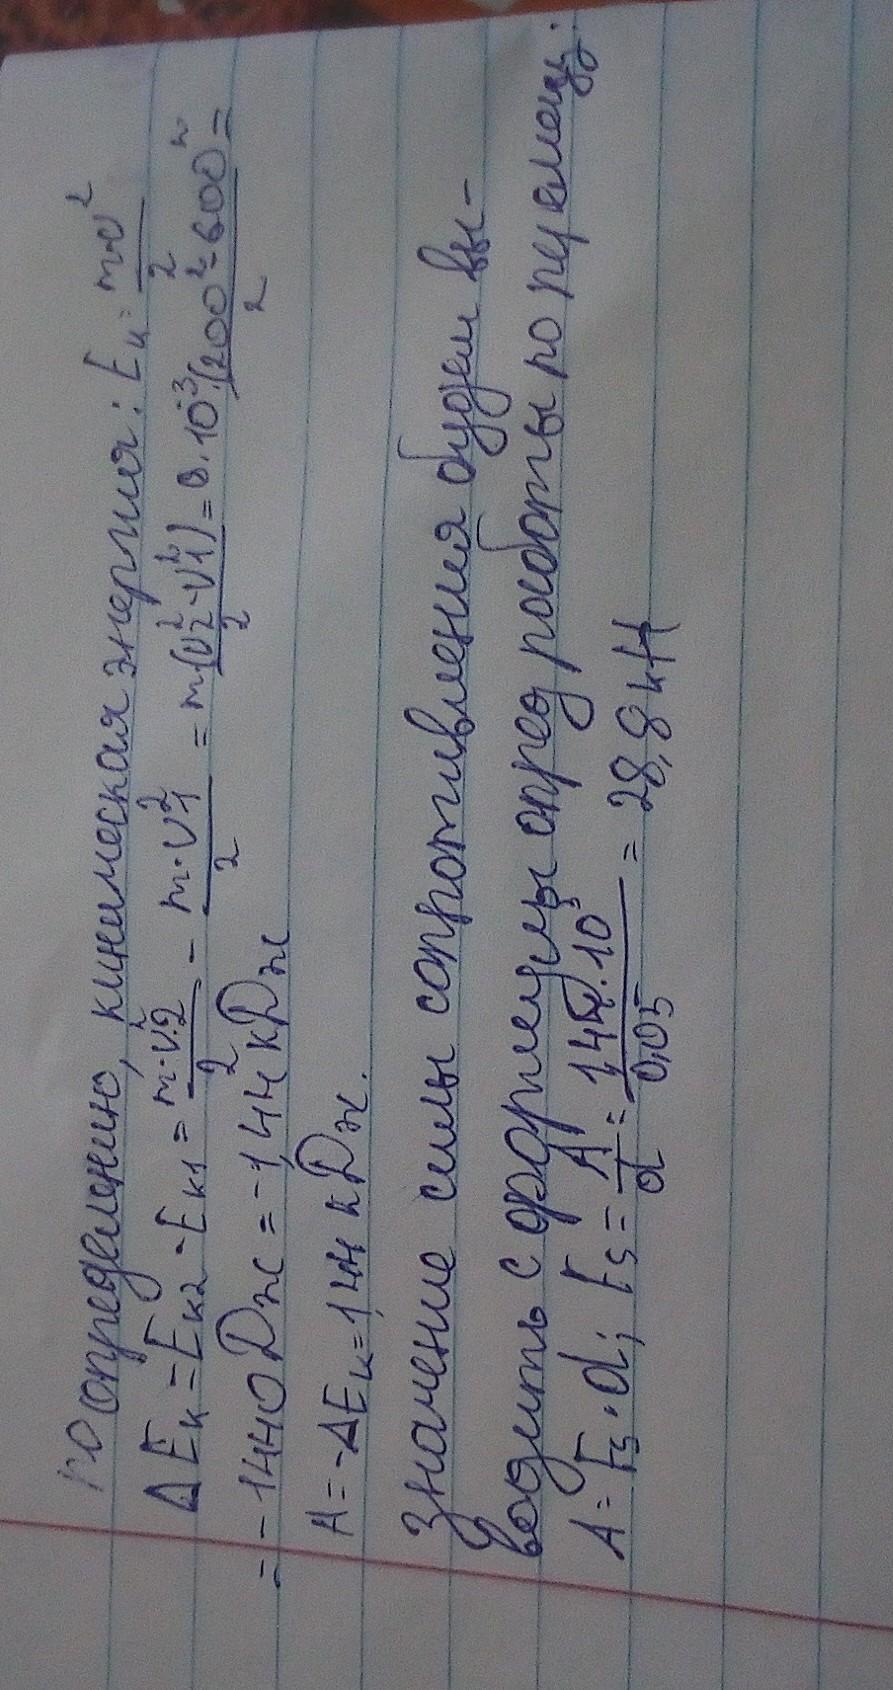 по определению, кинимеская энергия: Eк = m·υ² / 2
ΔEк = Eк2 - Eк1 = m·υ2² / 2 - m·υ1² / 2 = m(υ2² - υ1²) / 2 = 8·10⁻³·(200² - 600²) / 2 =
= -1440 Дж = -1,44 кДж
A = -ΔEк = 1,44 кДж.
Значение силы сопротивления будем вы-
водить с формулы опред работы по
A = Fs · d; Fs = A / d = 1,44·10³ / 0,05 = 28,8 кН